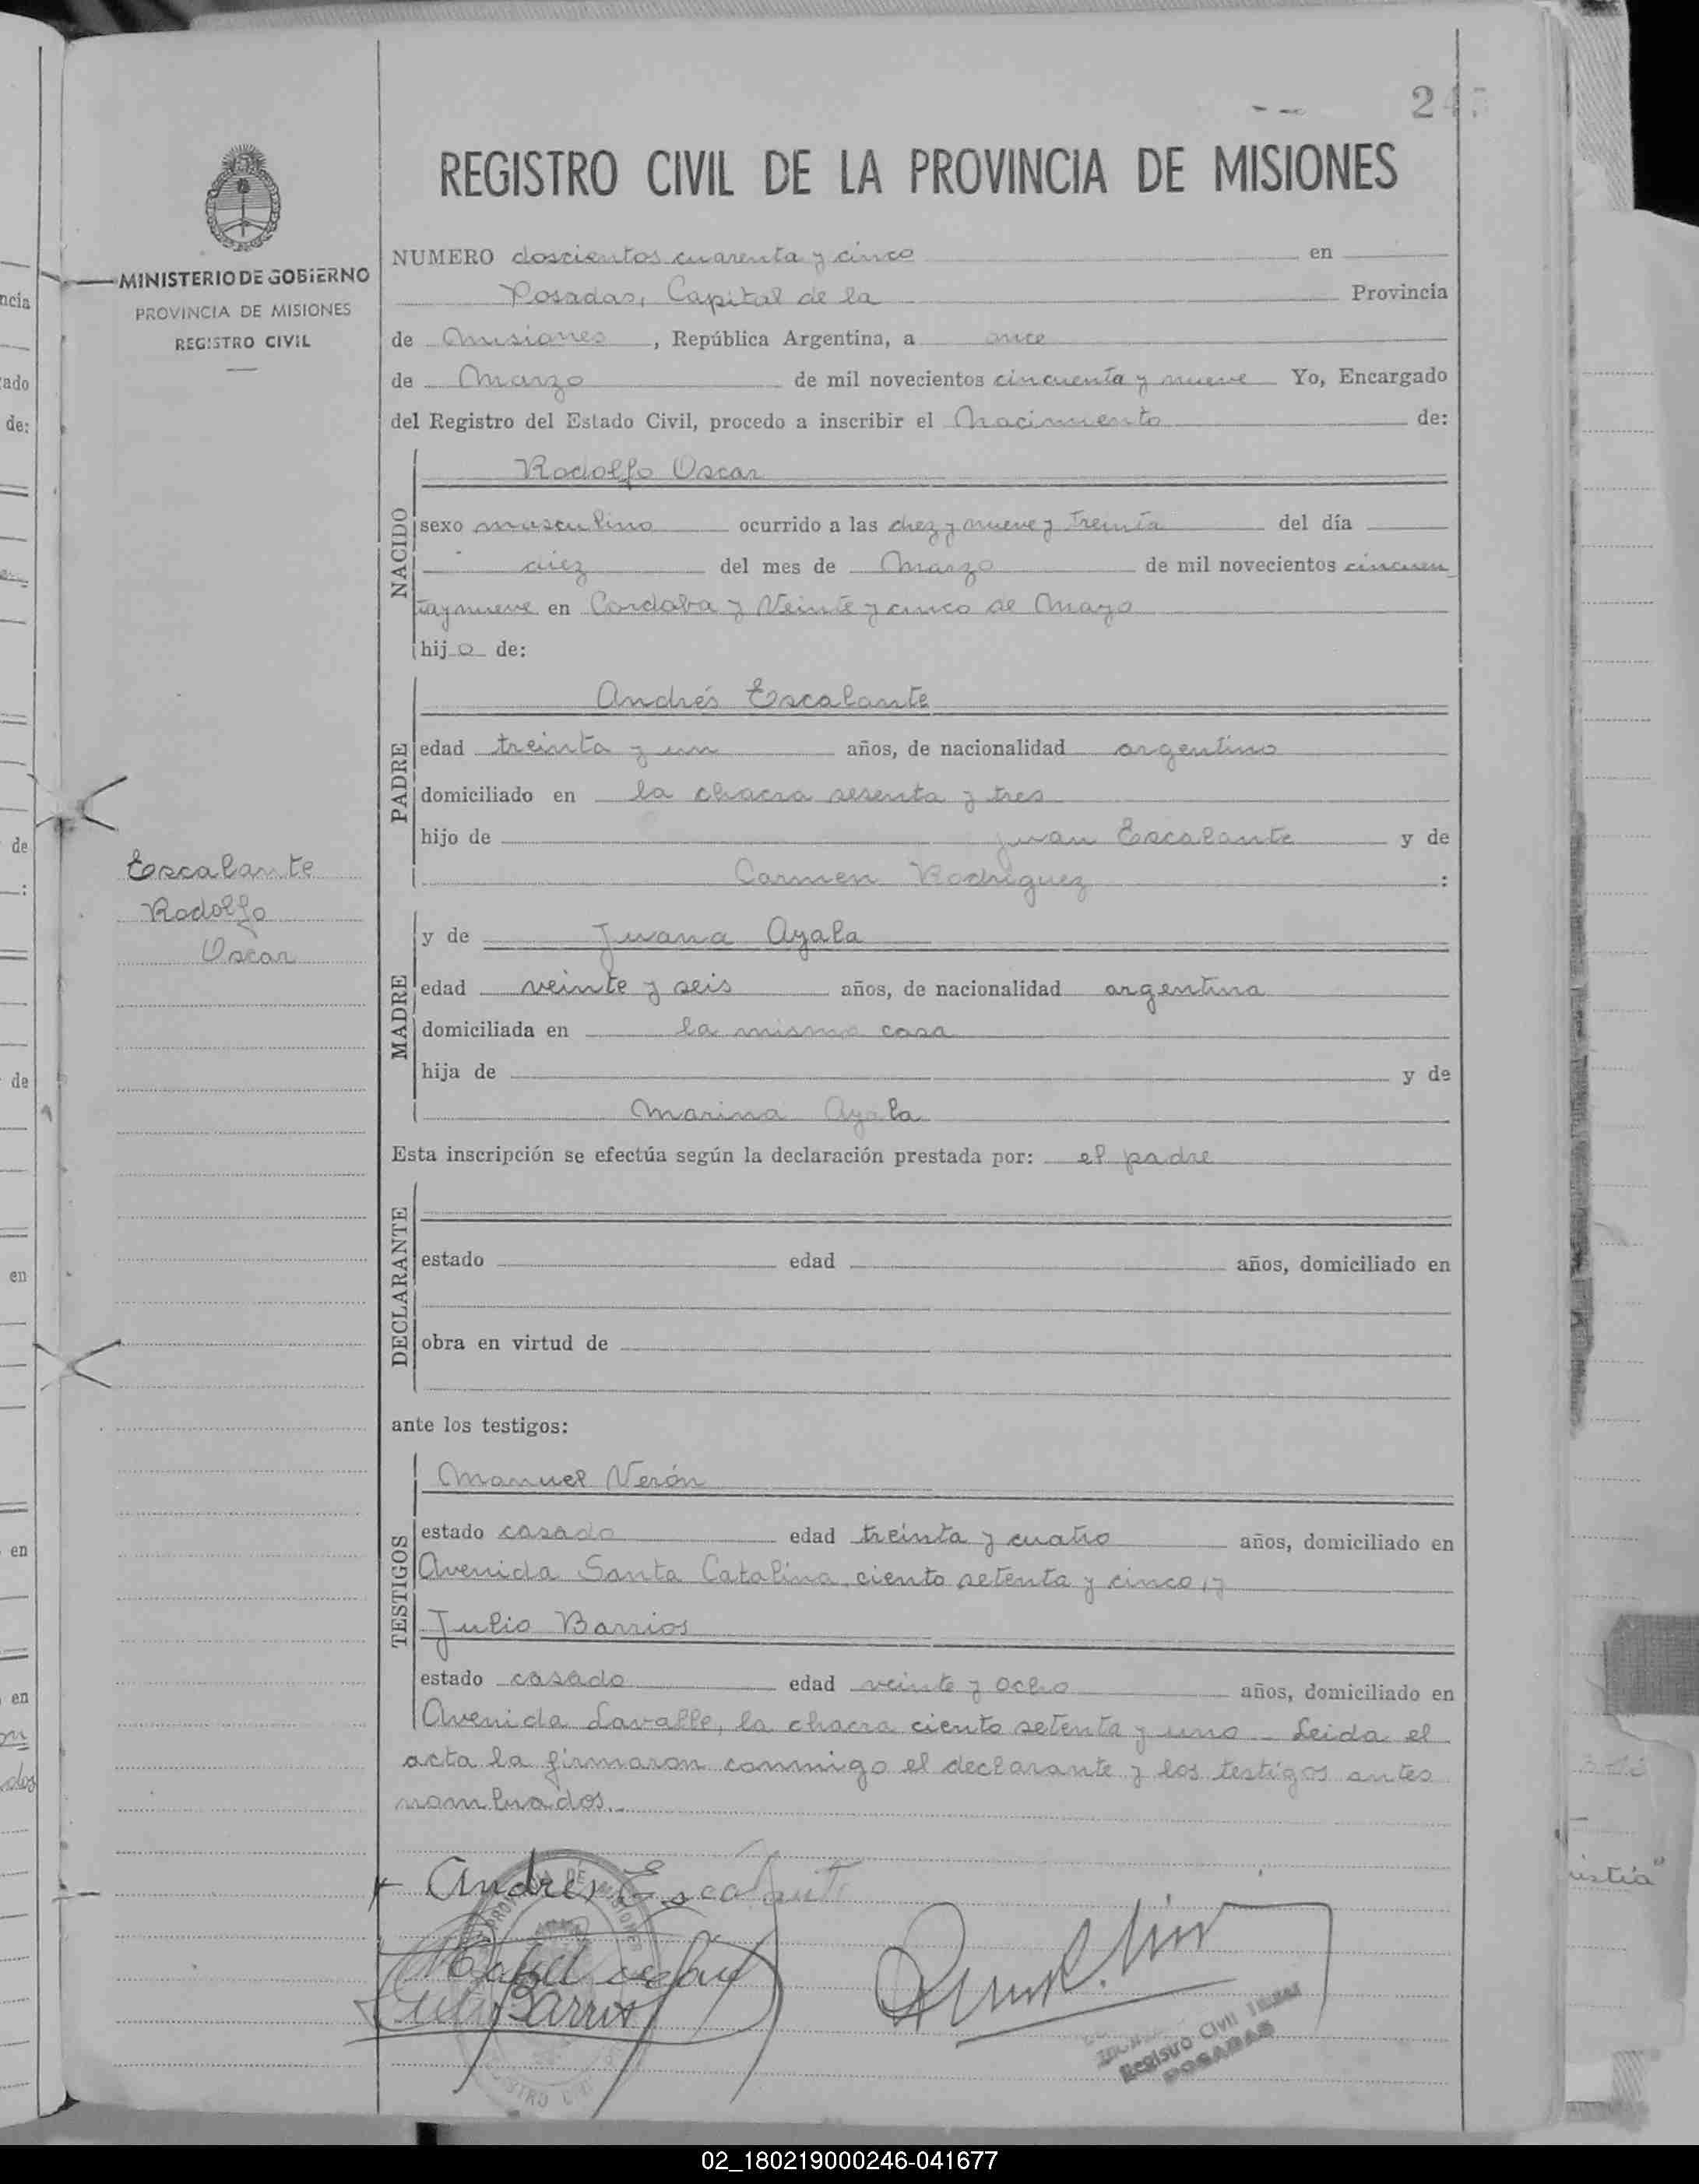 REGISTRO CIVIL DE LA PROVINCIA DE MISIONES
MINISTERIO DE GOBIERNO
PROVINCIA DE MISIONES
REGISTRO CIVIL
NUMERO doscientos cuarenta y cinco en
Posadas, Capital de la Provincia
de Misiones, República Argentina, a once
de Marzo de mil novecientos cincuenta y nueve Yo, Encargado
del Registro del Estado Civil, procedo a inscribir el Nacimiento de:
NACIDO
Rodolfo Oscar
sexo masculino ocurrido a las diez y nueve y treinta del día
diez del mes de Marzo de mil novecientos cincuen
ta y nueve en Cordoba y Veinte y cinco de Mayo
hijo de:
PADRE
Andrés Escalante
edad treinta y un años, de nacionalidad argentino
domiciliado en la chacra sesenta y tres
hijo de Juan Escalante y de
Carmen Rodriguez :
Escalante
Rodolfo
Oscar
MADRE
y de Juana Ayala
edad veinte y seis años, de nacionalidad argentina
domiciliada en la misma casa
hija de y de
Marina Ayala
Esta inscripción se efectúa según la declaración prestada por: el padre
DECLARANTE
estado edad años, domiciliado en
obra en virtud de
ante los testigos:
TESTIGOS
Manuel Verón
estado casado edad treinta y cuatro años, domiciliado en
Avenida Santa Catalina, ciento setenta y cinco, y
Julio Barrios
estado casado edad veinte y ocho años, domiciliado en
Avenida Lavalle, la chacra ciento setenta y uno - Leida el
acta la firmaron conmigo el declarante y los testigos antes
nombrados.
Andres Escalante
Julio Barrios
Registro Civil
POSADAS
02_180219000246-041677